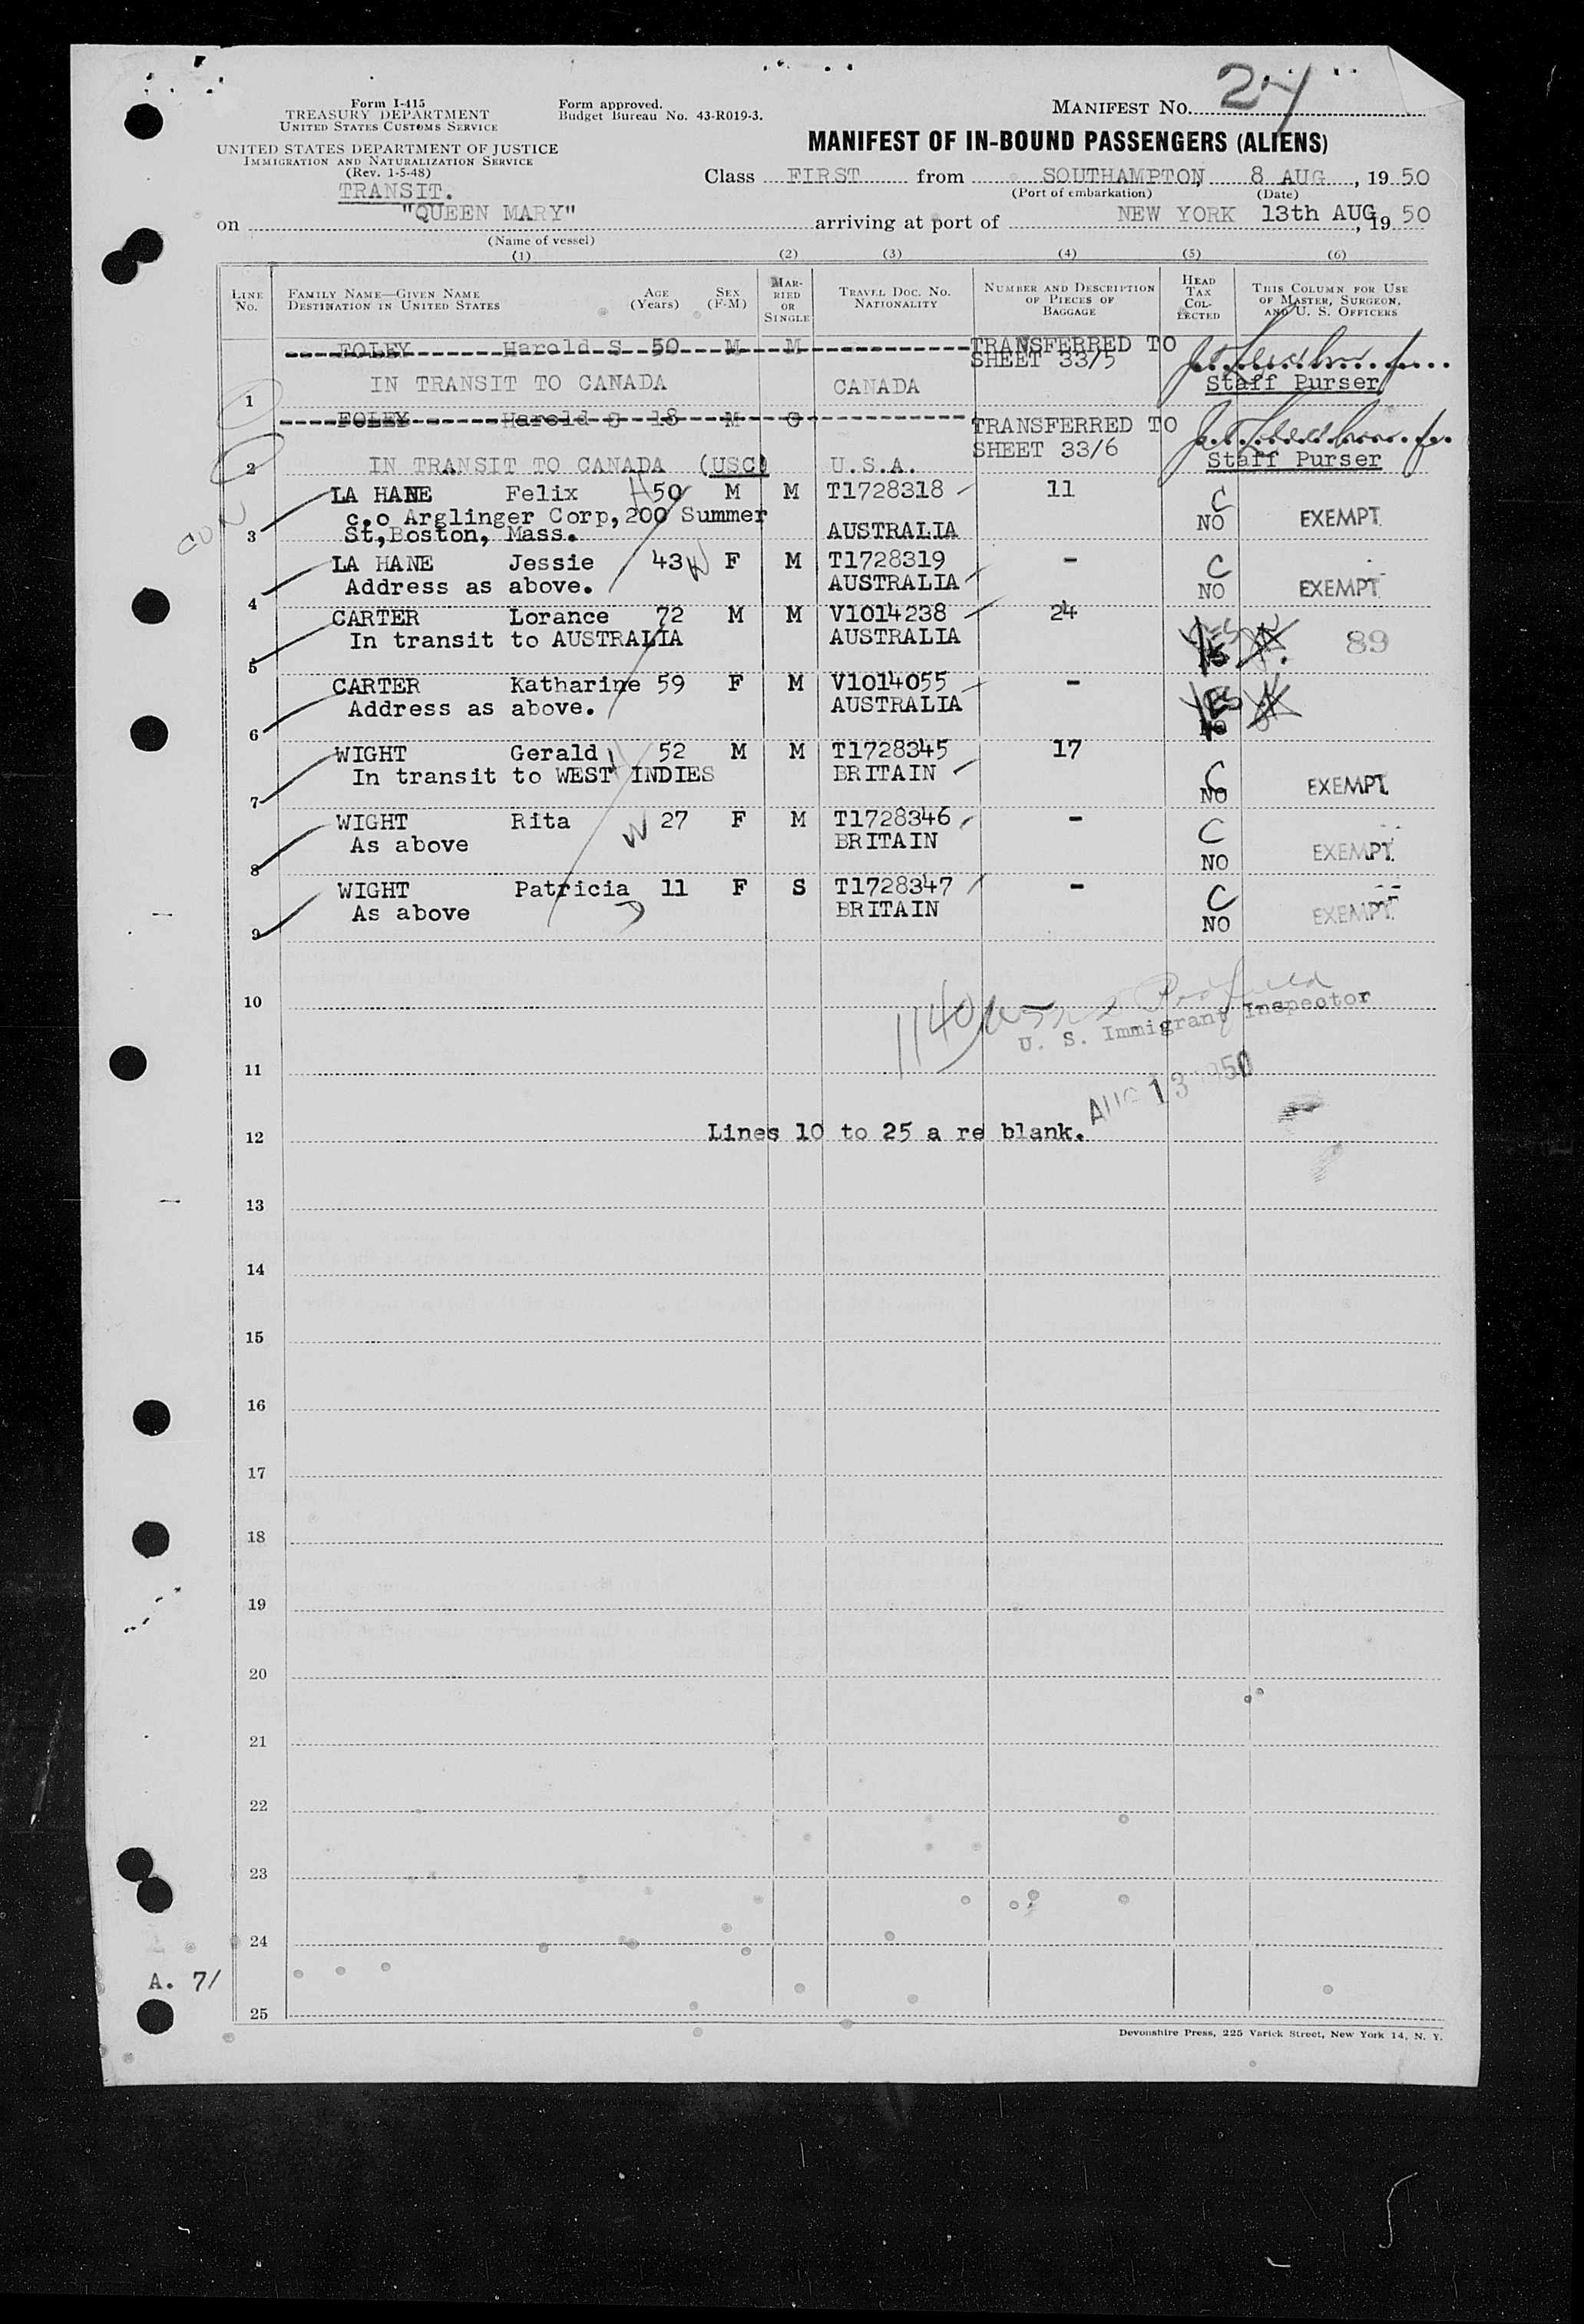 24
Form I-415
TREASURY DEPARTMENT
UNITED STATES CUSTOMS SERVICE
UNITED STATES DEPARTMENT OF JUSTICE
IMMIGRATION AND NATURALIZATION SERVICE
(Rev. 1-5-48)
TRANSIT.
Form approved.
Budget Bureau No. 43-R019-3.
MANIFEST NO.
MANIFEST OF IN-BOUND PASSENGERS (ALIENS)
Class FIRST from SOUTHAMPTON, 8 AUG, 1950
(Port of embarkation) (Date)
on "QUEEN MARY" arriving at port of NEW YORK 13th AUG, 1950
(Name of vessel)
(1) (2) (3) (4) (5) (6)
LINE NO. FAMILY NAME—GIVEN NAME DESTINATION IN UNITED STATES AGE (Years) SEX (F-M) MARRIED OR SINGLE TRAVEL DOC. NO. NATIONALITY NUMBER AND DESCRIPTION OF PIECES OF BAGGAGE HEAD TAX COLLECTED THIS COLUMN FOR USE OF MASTER, SURGEON, AND U. S. OFFICERS
FOLEY Harold S 50 M M TRANSFERRED TO
SHEET 33/5
1 IN TRANSIT TO CANADA CANADA Staff Purser
FOLEY Harold S 18 M S TRANSFERRED TO
SHEET 33/6
2 IN TRANSIT TO CANADA (USC) U.S.A. Staff Purser
LA HANE Felix H 50 M M T1728318 11 C
c.o Arglinger Corp, 200 Summer NO EXEMPT.
3 St, Boston, Mass. AUSTRALIA
LA HANE Jessie 43 W F M T1728319 - C
4 Address as above. AUSTRALIA NO EXEMPT.
CARTER Lorance 72 M M V1014238 24
5 In transit to AUSTRALIA AUSTRALIA YES 89
CARTER Katharine 59 F M V1014055 -
6 Address as above. AUSTRALIA YES
WIGHT Gerald H 52 M M T1728345 17 C
7 In transit to WEST INDIES BRITAIN NO EXEMPT.
WIGHT Rita W 27 F M T1728346 - C
8 As above BRITAIN NO EXEMPT.
WIGHT Patricia 11 F S T1728347 - C
9 As above BRITAIN NO EXEMPT.
10
U. S. Immigrant Inspector
11
AUG 13 1950
12 Lines 10 to 25 a re blank.
13
14
15
16
17
18
19
20
21
22
23
24
A. 7/
25
Devonshire Press, 225 Varick Street, New York 14, N. Y.